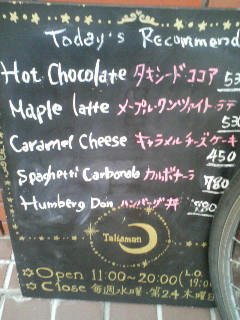 Today's Recommend
Hot Chocolate タキシードココア 53
Maple latte メープル・クンツァイトラテ
530
Caramel Cheese キャラメルチーズケーキ
450
Spaghetti Carbonala カルボナーラ 780
Humberg Don ハンバーグ丼
Talisman
Open 11:00~20:00 (L.O. 19:00
Close 毎週水曜・第2.4木曜日